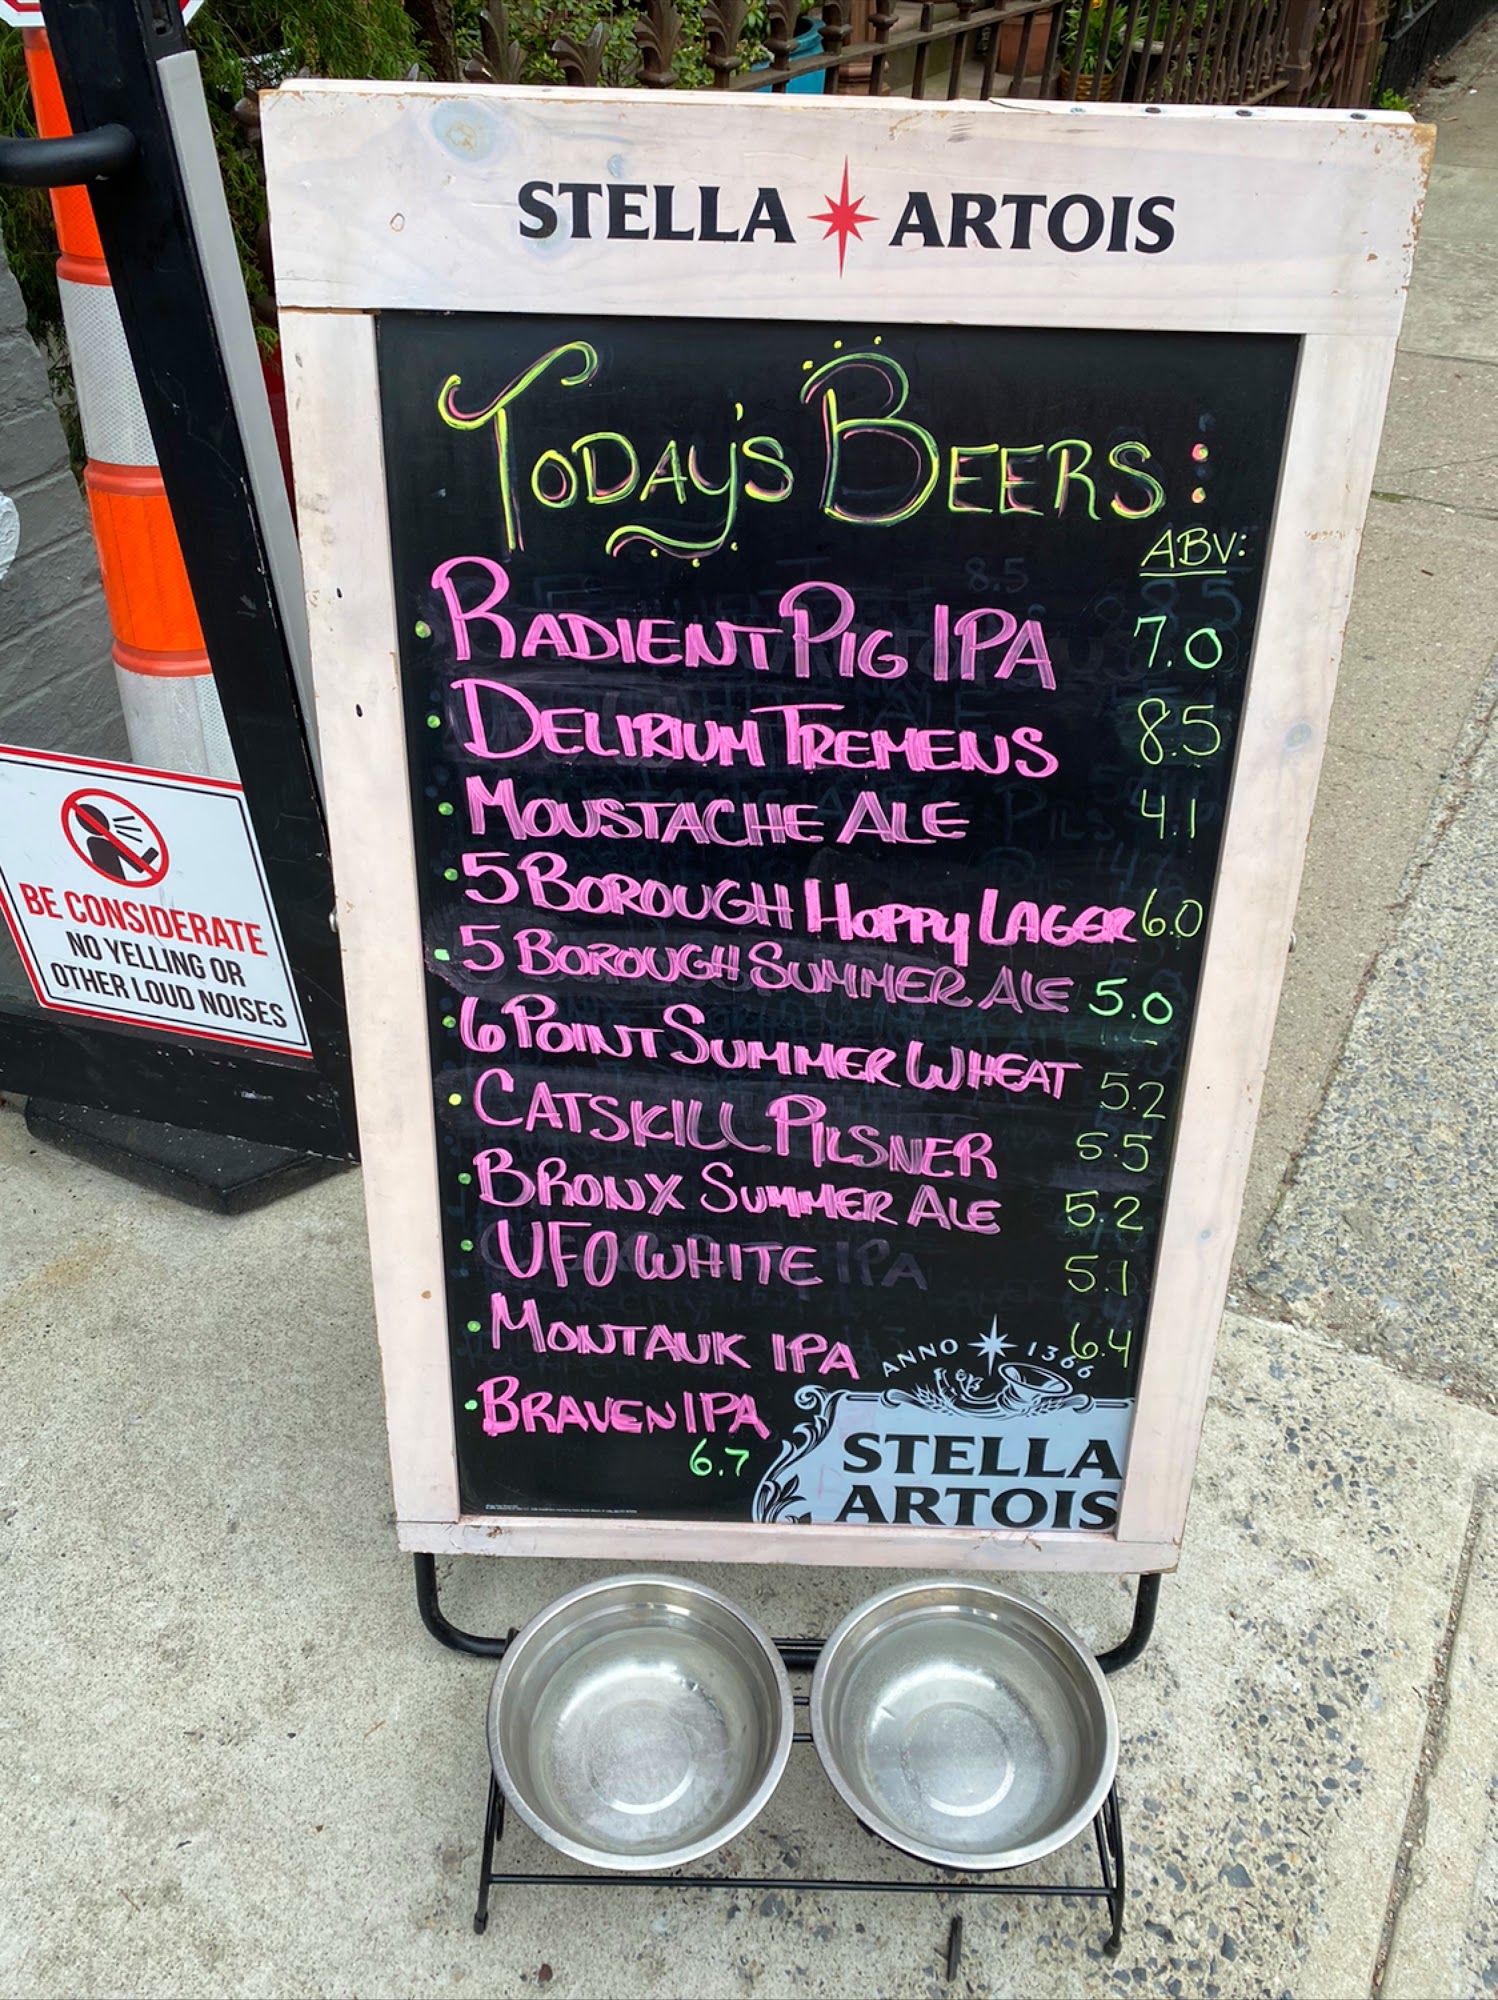 STELLA ARTOIS
TODAY'S BEERS:
ABV:
RADIENT PIG IPA 7.0
DELIRIUM TREMENS 8.5
MOUSTACHE ALE 4.1
5 BOROUGH HOPPY LAGER 6.0
5 BOROUGH SUMMER ALE 5.0
6 POINT SUMMER WHEAT 5.2
CATSKILL PILSNER 5.5
BRONX SUMMER ALE 5.2
UFO WHITE 5.1
MONTAUK IPA 6.4
BRAVEN IPA
6.7
ANNO 1366
STELLA
ARTOIS
BE CONSIDERATE
NO YELLING OR
OTHER LOUD NOISES